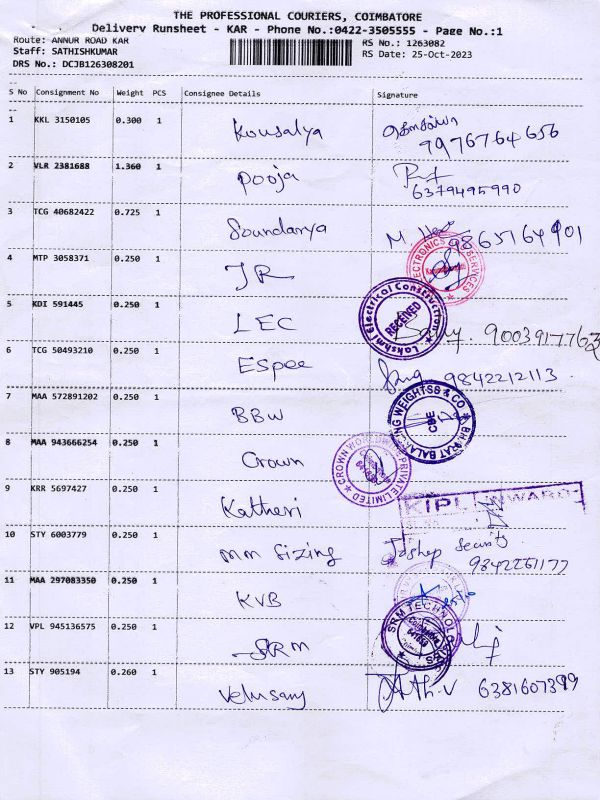 THE PROFESSIONAL COURIERS, COIMBATORE
Delivery Runsheet - KAR - Phone No.:0422-3505555 - Page No.:1
Route: ANNUR ROAD KAR RS No.: 1263082
Staff: SATHISHKUMAR RS Date: 25-Oct-2023
DRS No.: DCJB126308201
S No Consignment No Weight PCS Consignee Details Signature
1 KKL 3150105 0.300 1 Kousalya கௌசல்யா
9976764656
2 VLR 2381688 1.360 1 Pooja
6379495990
3 TCG 40682422 0.725 1 Soundarya M 9865164901
4 MTP 3058371 0.250 1 JR ELECTRONICS SERVICES
5 KDI 591445 0.250 1 LEC Lakshmi Electrical Construction RECEIVED 9003917763
6 TCG 50493210 0.250 1 Espee 9842212113
7 MAA 572891202 0.250 1 BBW BHARAT BALANCING WEIGHTSS & CO CBE
8 MAA 943666254 0.250 1 Crown CROWN PRIVATE LIMITED
9 KRR 5697427 0.250 1 Katheri KIPL INWARD
10 STY 6003779 0.250 1 mm Sizing Security
9842261177
11 MAA 297083350 0.250 1 KVB
12 VPL 945136575 0.250 1 SRM SRM TECHNOLOGIES
13 STY 905194 0.260 1 Velusamy 6381607399